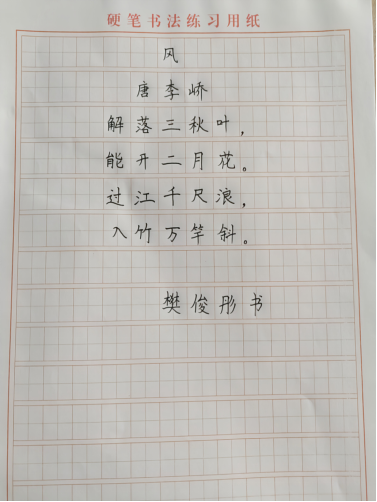 硬笔书法练习用纸
风
唐李峤
解落三秋叶，
能开二月花。
过江千尺浪，
入竹万竿斜。
樊俊彤书